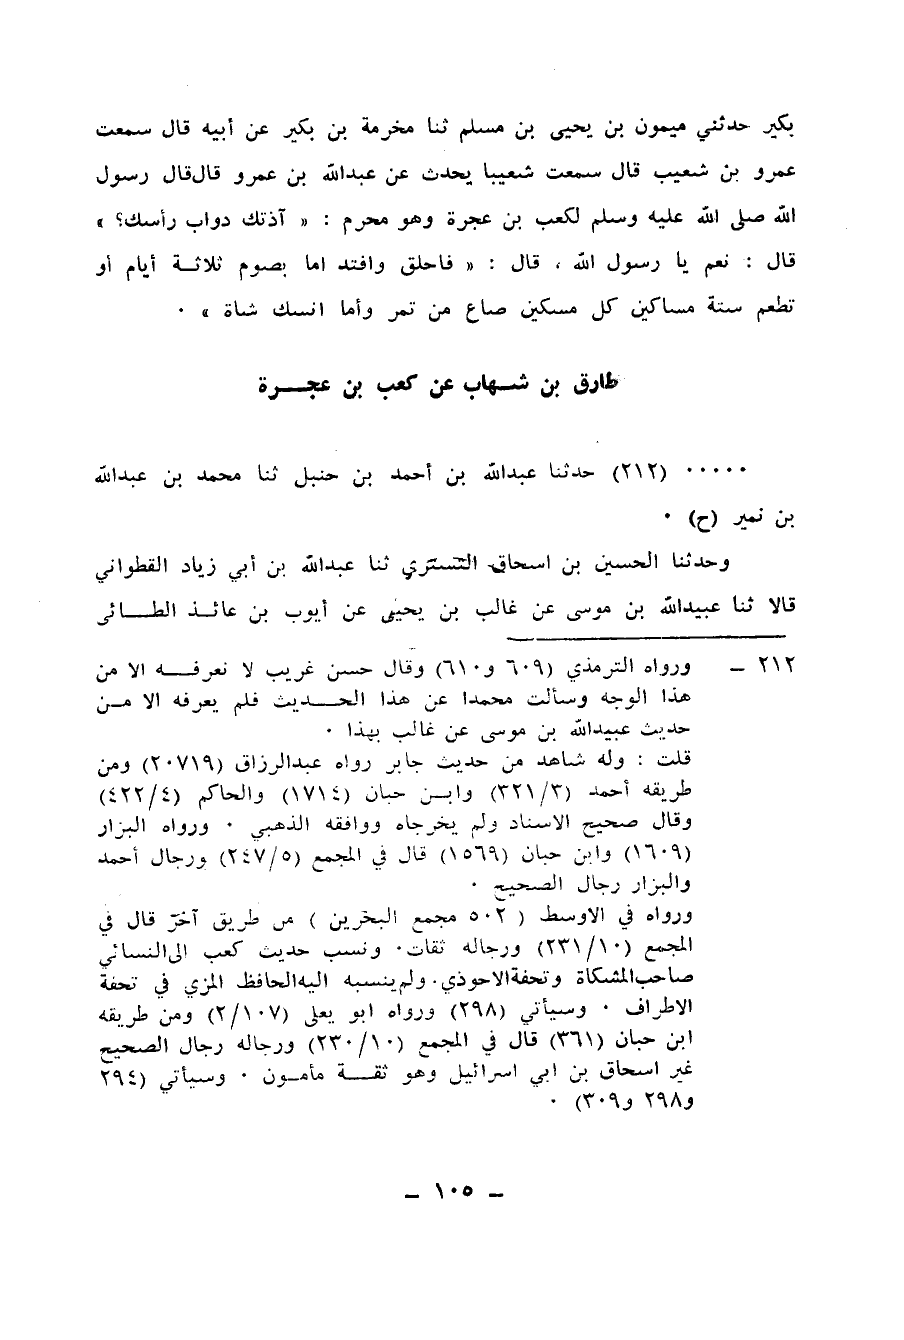 بكير حدثني ميمون بن يحيى بن مسلم ثنا مخرمة بن بكير عن أبيه قال سمعت
عمرو بن شعيب قال سمعت شعيبا يحدث عن عبدالله بن عمرو قال قال رسول
الله صلى الله عليه وسلم لكعب بن عجرة وهو محرم : « آذتك دواب رأسك؟ »
قال : نعم يا رسول الله ، قال : « فاحلق وافتد اما بصوم ثلاثة أيام أو
تطعم ستة مساكين كل مسكين صاع من تمر وأما انسك شاة » ٠
طارق بن شهاب عن كعب بن عجرة
٠٠٠٠٠ (٢١٢) حدثنا عبدالله بن أحمد بن حنبل ثنا محمد بن عبدالله
بن نمير (ح) ٠
وحدثنا الحسين بن اسحاق التستري ثنا عبدالله بن أبي زياد القطواني
قالا ثنا عبيدالله بن موسى عن غالب بن يحيى عن أيوب بن عائذ الطائى
٢١٢ ـ ورواه الترمذي (٦٠٩ و٦١٠) وقال حسن غريب لا نعرفه الا من
هذا الوجه وسألت محمدا عن هذا الحديث فلم يعرفه الا من
حديث عبيدالله بن موسى عن غالب بهذا ٠
قلت : وله شاهد من حديث جابر رواه عبدالرزاق (٢٠٧١٩) ومن
طريقه أحمد (٣٢١/٣) وابن حبان (١٧١٤) والحاكم (٤٢٢/٤)
وقال صحيح الاسناد ولم يخرجاه ووافقه الذهبي ٠ ورواه البزار
(١٦٠٩) وابن حبان (١٥٦٩) قال في المجمع (٢٤٧/٥) ورجال أحمد
والبزار رجال الصحيح ٠
ورواه في الاوسط ( ٥٠٢ مجمع البحرين ) من طريق آخر قال في
المجمع (٢٣١/١٠) ورجاله ثقات٠ ونسب حديث كعب الى النسائي
صاحب المشكاة وتحفة الاحوذي. ولم ينسبه اليه الحافظ المزي في تحفة
الاطراف ٠ وسيأتي (٢٩٨) ورواه ابو يعلى (٢/١٠٧) ومن طريقه
ابن حبان (٣٦١) قال في المجمع (٢٣٠/١٠) ورجاله رجال الصحيح
غير اسحاق بن ابي اسرائيل وهو ثقة مأمون ٠ وسيأتي (٢٩٤
و٢٩٨ و٣٠٩) ٠
ـ ١٠٥ ـ